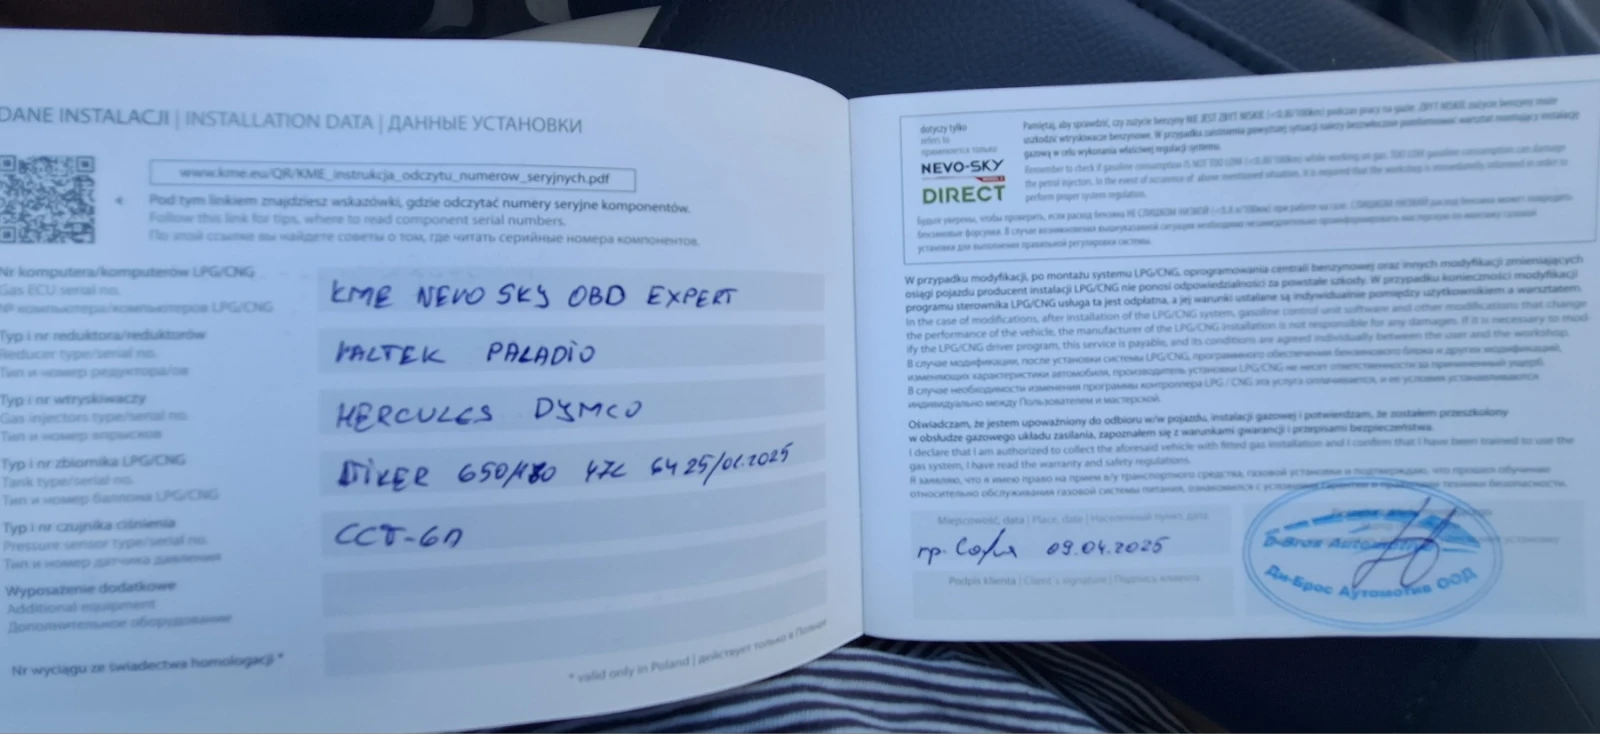 DANE INSTALACJI | INSTALLATION DATA | ДАННЫЕ УСТАНОВКИ
www.kme.eu/QR/KME_instrukcja_odczytu_numerow_seryjnych.pdf
Pod tym linkiem znajdziesz wskazówki, gdzie odczytać numery seryjne komponentów.
Follow this link for tips, where to read component serial numbers.
По этой ссылке вы найдете советы о том, где читать серийные номера компонентов.
Nr komputera/komputerów LPG/CNG
Gas ECU serial no.
№ компьютера/компьютеров LPG/CNG
KME NEVO SKY OBD EXPERT
Typ i nr reduktora/reduktorów
Reducer type/serial no.
Тип и номер редуктора/ов
VALTEK PALADIO
Typ i nr wtryskiwaczy
Gas injectors type/serial no.
Тип и номер впрысков
HERCULES DYMCO
Typ i nr zbiornika LPG/CNG
Tank type/serial no.
Тип и номер баллона LPG/CNG
650/180 47L 6425/01.2025
Typ i nr czujnika ciśnienia
Pressure sensor type/serial no.
Тип и номер датчика давления
CCT-6
Wyposażenie dodatkowe
Additional equipment
Дополнительное оборудование
Nr wyciągu ze świadectwa homologacji *
* valid only in Poland | действует только в Польше
dotyczy tylko
refers to
применяется только
NEVO-SKY
DIRECT
Pamiętaj, aby sprawdzić, czy zużycie benzyny NIE JEST ZBYT NISKIE (<0.8l/100km) podczas pracy na gazie. ZBYT NISKIE zużycie benzyny może
uszkodzić wtryskiwacze benzynowe. W przypadku zaistnienia powyższej sytuacji należy bezzwłocznie poinformować warsztat montujący instalację
gazową w celu wykonania właściwej regulacji systemu.
Remember to check if gasoline consumption IS NOT TOO LOW (<0.8l/100km) while working on gas. TOO LOW gasoline consumption can damage
the petrol injectors. In the event of occurence of above mentioned situation, it is required that the workshop is immediately informed in order to
perform proper system regulation.
установки для выполнения правильной регулировки системы.
W przypadku modyfikacji, po montażu systemu LPG/CNG, oprogramowania centrali benzynowej oraz innych modyfikacji zmieniających
osiągi pojazdu producent instalacji LPG/CNG nie ponosi odpowiedzialności za powstałe szkody. W przypadku konieczności modyfikacji
programu sterownika LPG/CNG usługa ta jest odpłatna, a jej warunki ustalane są indywidualnie pomiędzy użytkownikiem a warsztatem.
In the case of modifications, after installation of the LPG/CNG system, gasoline control unit software and other modifications that change
the performance of the vehicle, the manufacturer of the LPG/CNG installation is not responsible for any damages. If it is necessary to mod-
ify the LPG/CNG driver program, this service is payable, and its conditions are agreed individually between the user and the workshop.
В случае модификации, после установки системы LPG/CNG, программного обеспечения бензинового блока и других модификаций,
изменяющих характеристики автомобиля, производитель установки LPG/CNG не несет ответственности за причиненный ущерб.
В случае необходимости изменения программы контроллера LPG / CNG эта услуга оплачивается, и ее условия устанавливаются
индивидуально между Пользователем и мастерской.
Oświadczam, że jestem upoważniony do odbioru w/w pojazdu, instalacji gazowej i potwierdzam, że zostałem przeszkolony
w obsłudze gazowego układu zasilania, zapoznałem się z warunkami gwarancji i przepisami bezpieczeństwa.
I declare that I am authorized to collect the aforesaid vehicle with fitted gas installation and I confirm that I have been trained to use the
gas system, I have read the warranty and safety regulations.
Я заявляю, что я имею право на прием в/у транспортного средства, газовой установки и подтверждаю, что прошел обучение
относительно обслуживания газовой системы питания, ознакомился с условиями гарантии и правилами техники безопасности.
Miejscowość, data | Place, date | Населенный пункт, дата
гр. София 09.04.2025
Podpis klienta | Client's signature | Подпись клиента
D-Bros Automotive
Ди-Брос Аутомотив ООД